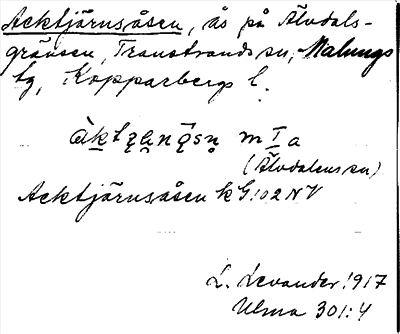 Acktjärnsåsen, ås på Älvdals-
gränsen, Transtrands sn, Malungs
tg, Kopparbergs l.
m I a
(Älvdalens sn)
Acktjärnsåsen k G! 02 NV
L. Levander 1917
Ulma 301:4